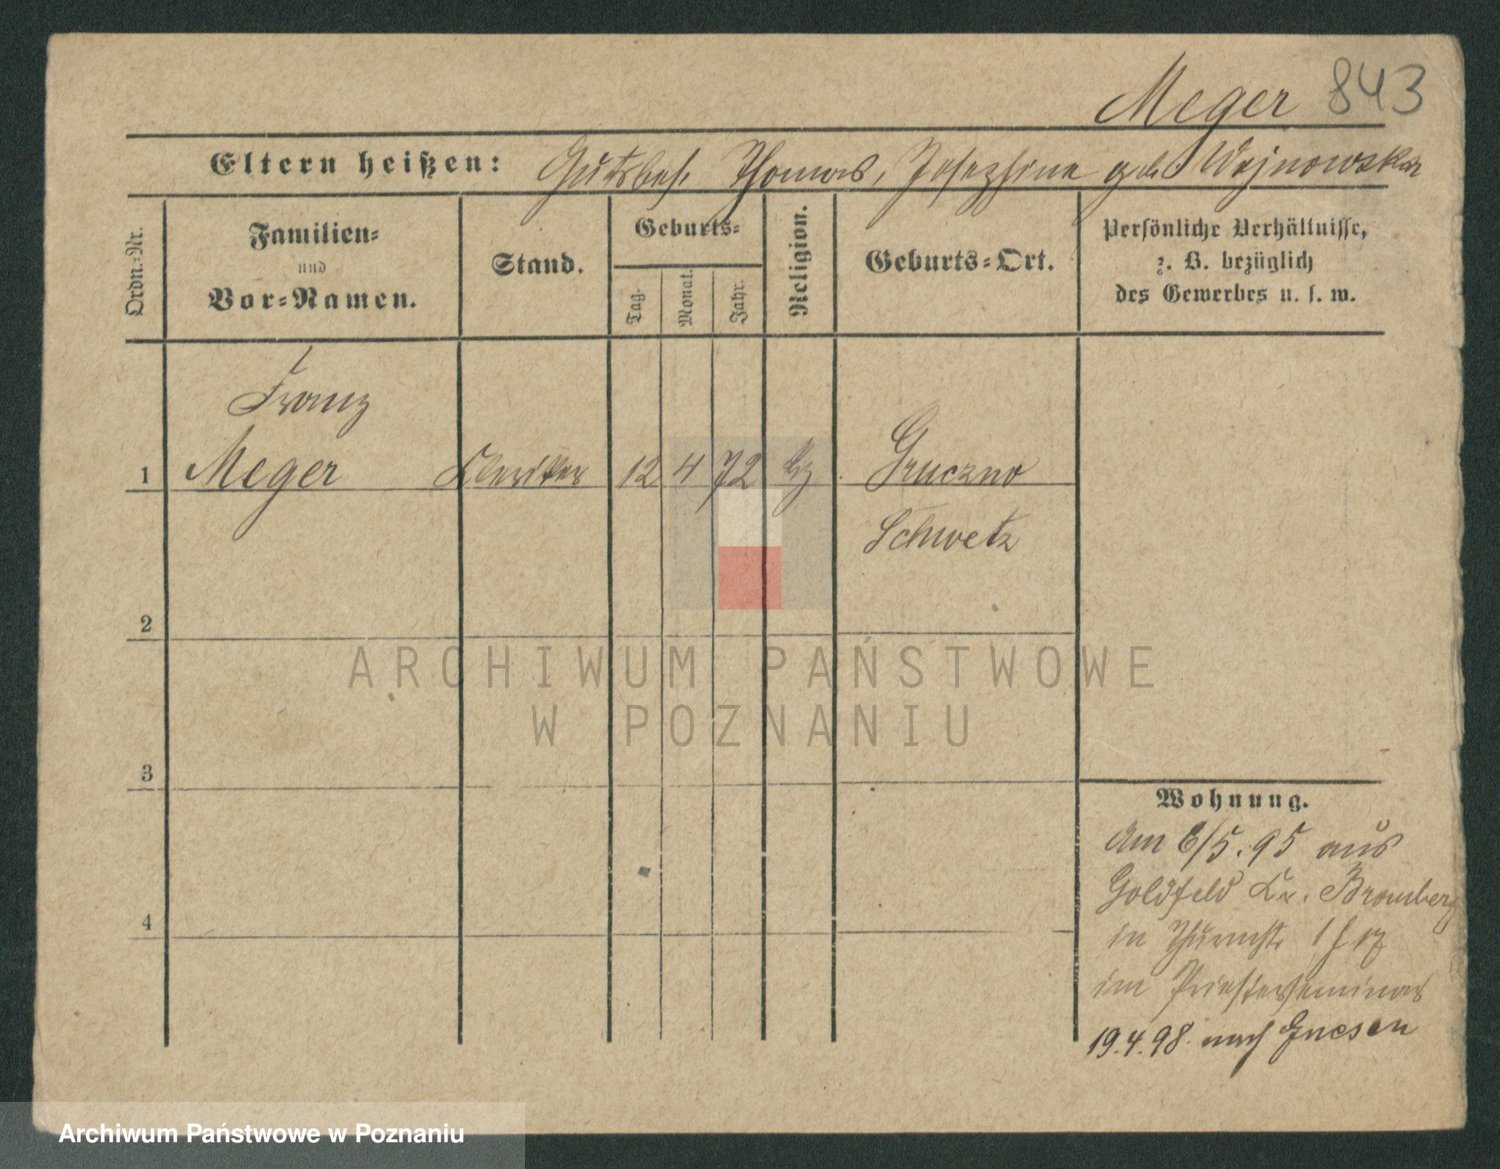 Meger 843
Eltern heißen: Gutsbes. Thomas, Josephine geb. Wojnowska
Ordn.-Nr.
Familien-
und
Vor-Namen.
Stand.
Geburts-
Tag.
Monat.
Jahr.
Religion.
Geburts-Ort.
Persönliche Verhältnisse,
z. B. bezüglich
des Gewerbes u. s. w.
Franz
1 Meger Kleriker 12 4 72 Gruczno
Schwetz
2
3
4
ARCHIWUM PAŃSTWOWE
W POZNANIU
Wohnung.
Am 6/5.95 aus
Goldfeld Kr. Bromberg
in
im Priesterseminar
19.4.98. nach Gnesen
Archiwum Państwowe w Poznaniu